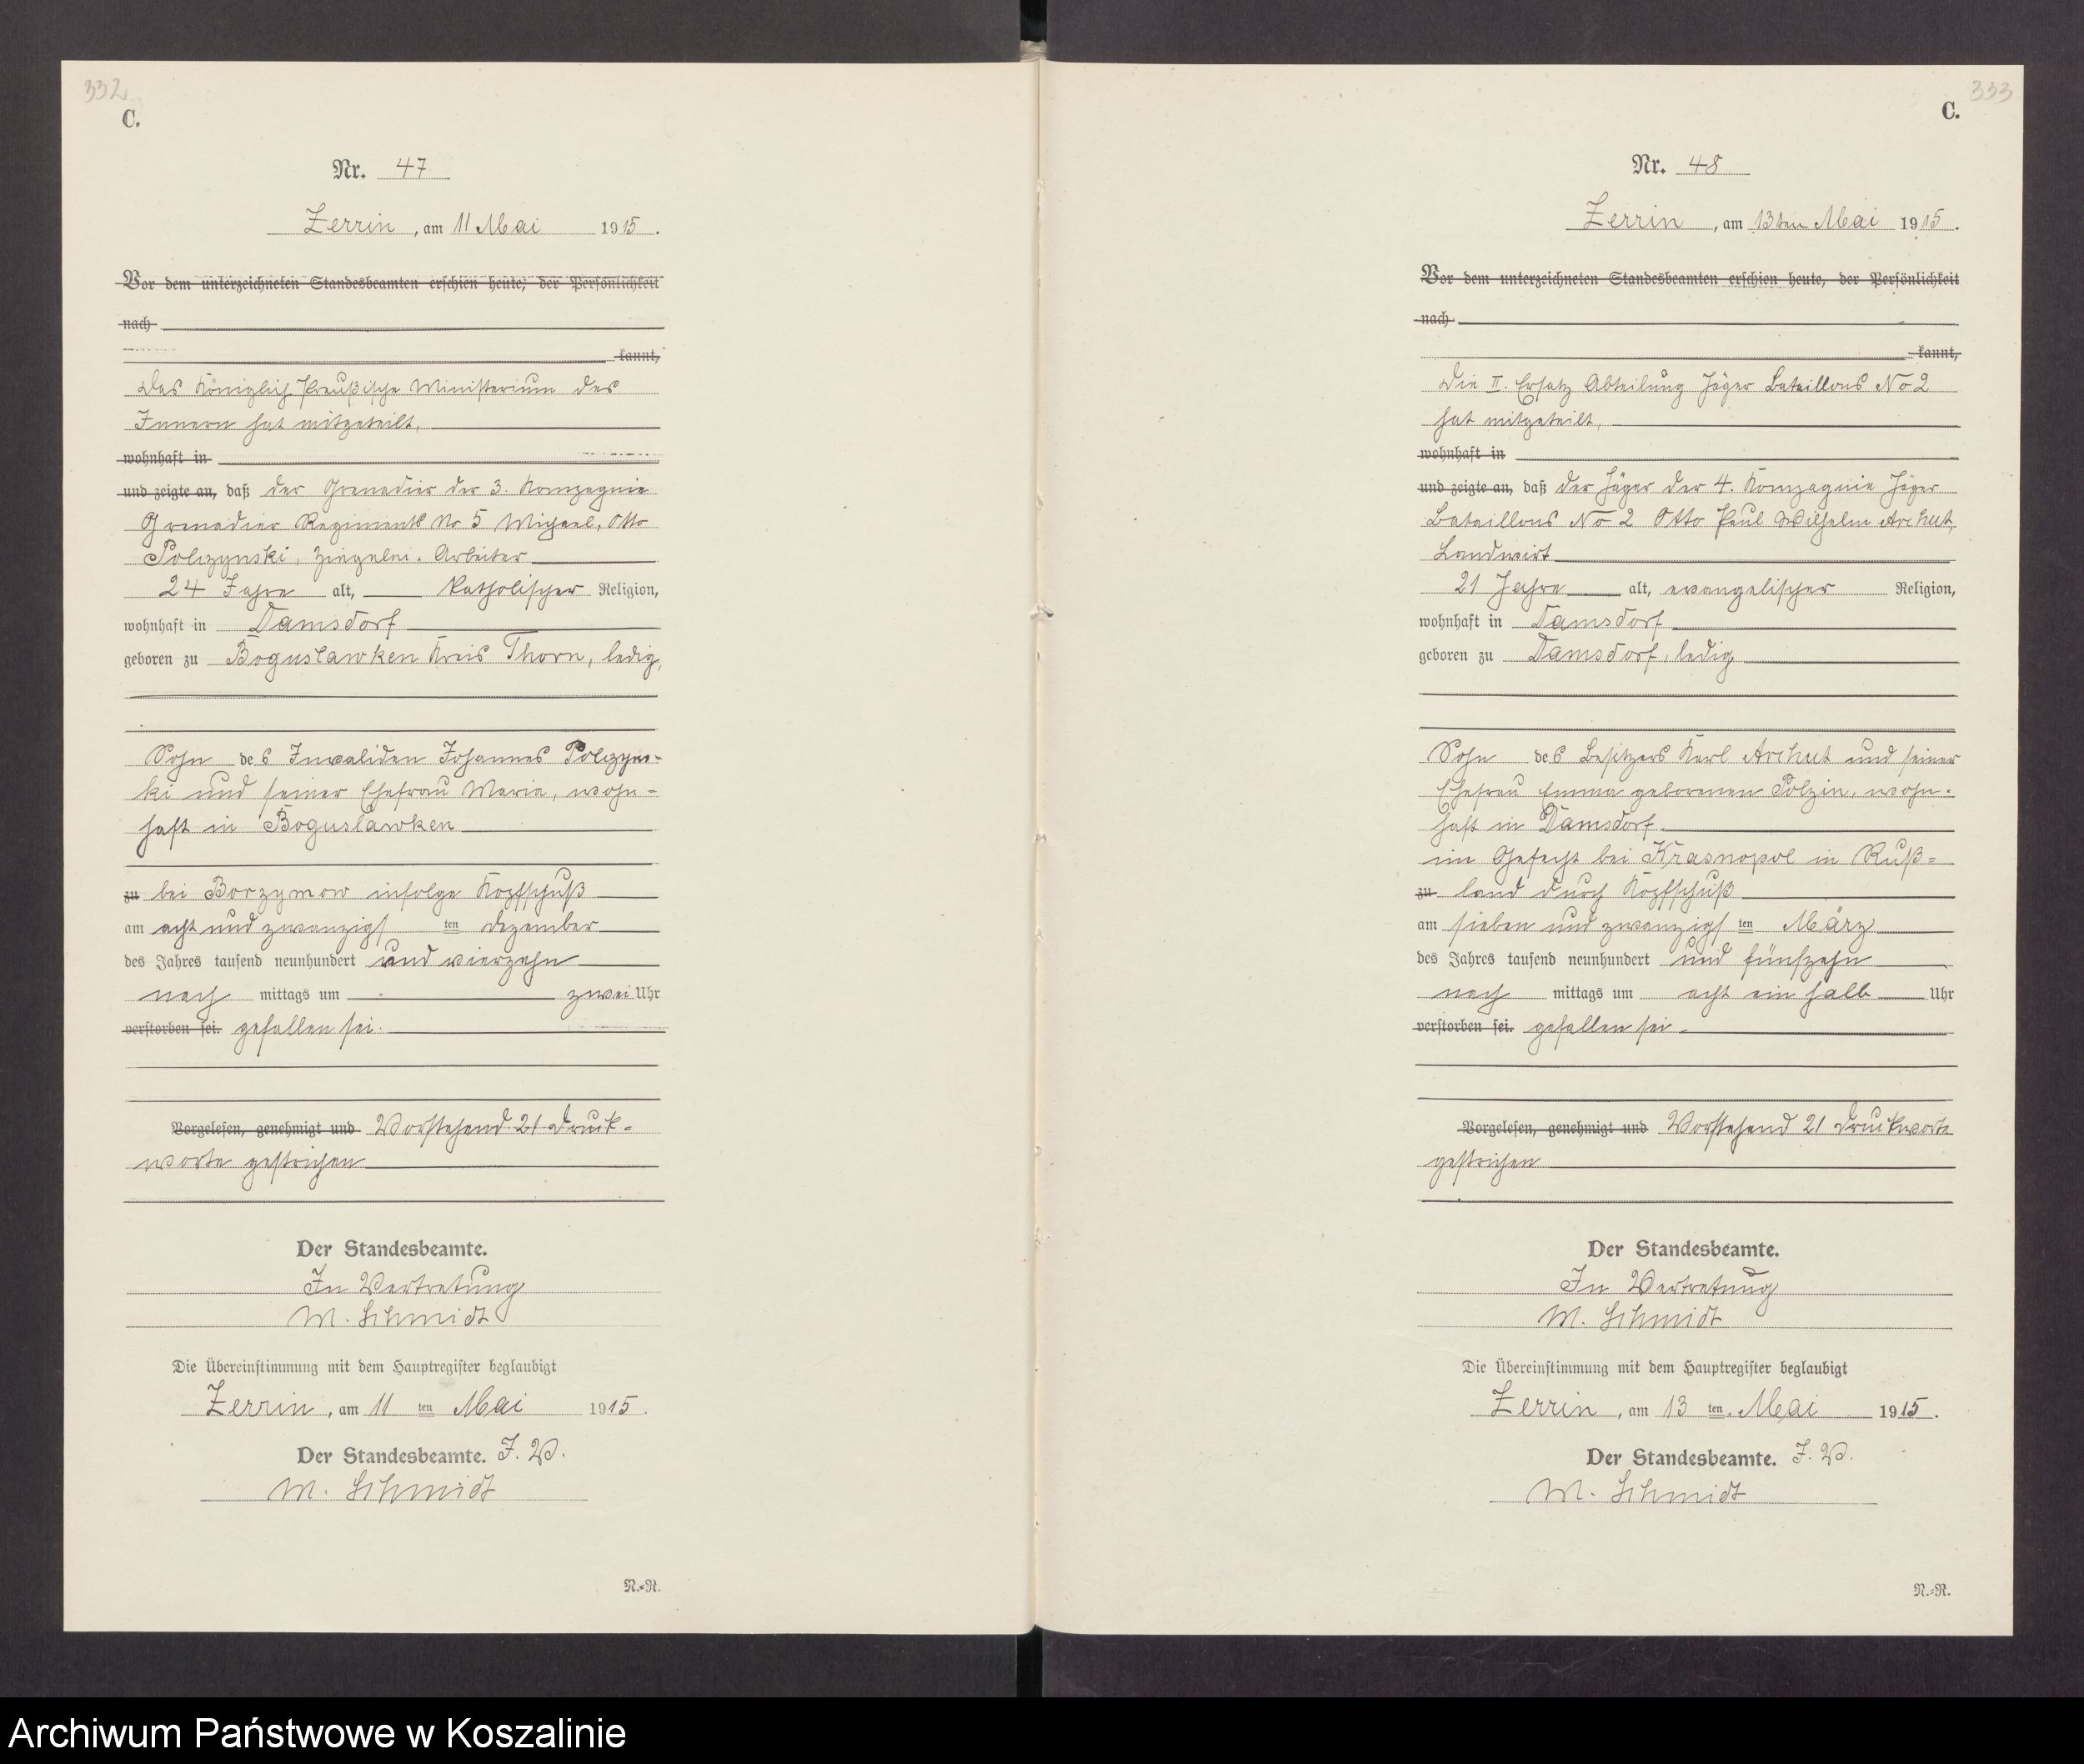 332
C.
Nr. 47
Zerrin, am 11 Mai 1915.
Vor dem unterzeichneten Standesbeamten erschien heute, der Persönlichkeit
nach
kannt,
Das Königlich Preußische Ministerium des
Innern hat mitgeteilt,
wohnhaft in
und zeigte an, daß der Grenadier der 3. Kompagnie
Grenadier Regiments No 5 Michael, Otto
Polczynski, Ziegelei. Arbeiter
24 Jahre alt, katholischer Religion,
wohnhaft in Damsdorf
geboren zu Boguslawken Kreis Thorn, ledig,
Sohn des Invaliden Johannes Polczyns-
ki und seiner Ehefrau Maria, wohn-
haft in Boguslawken
zu bei Borzymow infolge Kopfschuß
am acht und zwanzigsten Dezember
des Jahres tausend neunhundert und vierzehn
nach mittags um zwei Uhr
verstorben sei. gefallen sei.
Vorgelesen, genehmigt und Vorstehend 21 Druck-
worte gestrichen
Der Standesbeamte.
In Vertretung
M. Schmidt
Die Übereinstimmung mit dem Hauptregister beglaubigt
Zerrin, am 11 ten Mai 1915.
Der Standesbeamte. I. V.
M. Schmidt
N.-R.
333
C.
Nr. 48
Zerrin, am 13ten Mai 1915.
Vor dem unterzeichneten Standesbeamten erschien heute, der Persönlichkeit
nach
kannt,
Die II. Ersatz Abteilung Jäger Bataillons No 2
hat mitgeteilt,
wohnhaft in
und zeigte an, daß der Jäger der 4. Kompagnie Jäger
Bataillons No 2 Otto Paul Wilhelm Archut,
Landwirt
21 Jahre alt, evangelischer Religion,
wohnhaft in Damsdorf
geboren zu Damsdorf, ledig
Sohn des Besitzers Karl Archut und seiner
Ehefrau Emma geborenen Polzin, wohn-
haft in Damsdorf
im Gefecht bei Krasnopol in Ruß=
zu land durch Kopfschuß
am sieben und zwanzigsten März
des Jahres tausend neunhundert und fünfzehn
nach mittags um acht ein halb Uhr
verstorben sei. gefallen sei.
Vorgelesen, genehmigt und Vorstehend 21 Druckworte
gestrichen
Der Standesbeamte.
In Vertretung
M. Schmidt
Die Übereinstimmung mit dem Hauptregister beglaubigt
Zerrin, am 13 ten Mai 1915.
Der Standesbeamte. I. V.
M. Schmidt
N.-R.
Archiwum Państwowe w Koszalinie